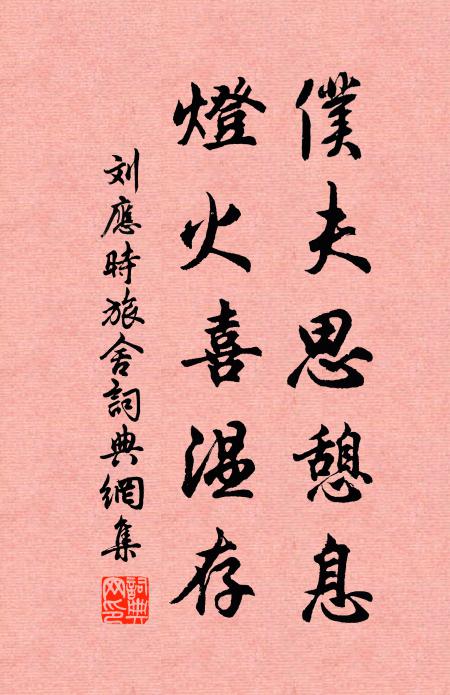 僕夫思憩息
燈火喜温存
刘應時旅舍詞典網集
詞典網印